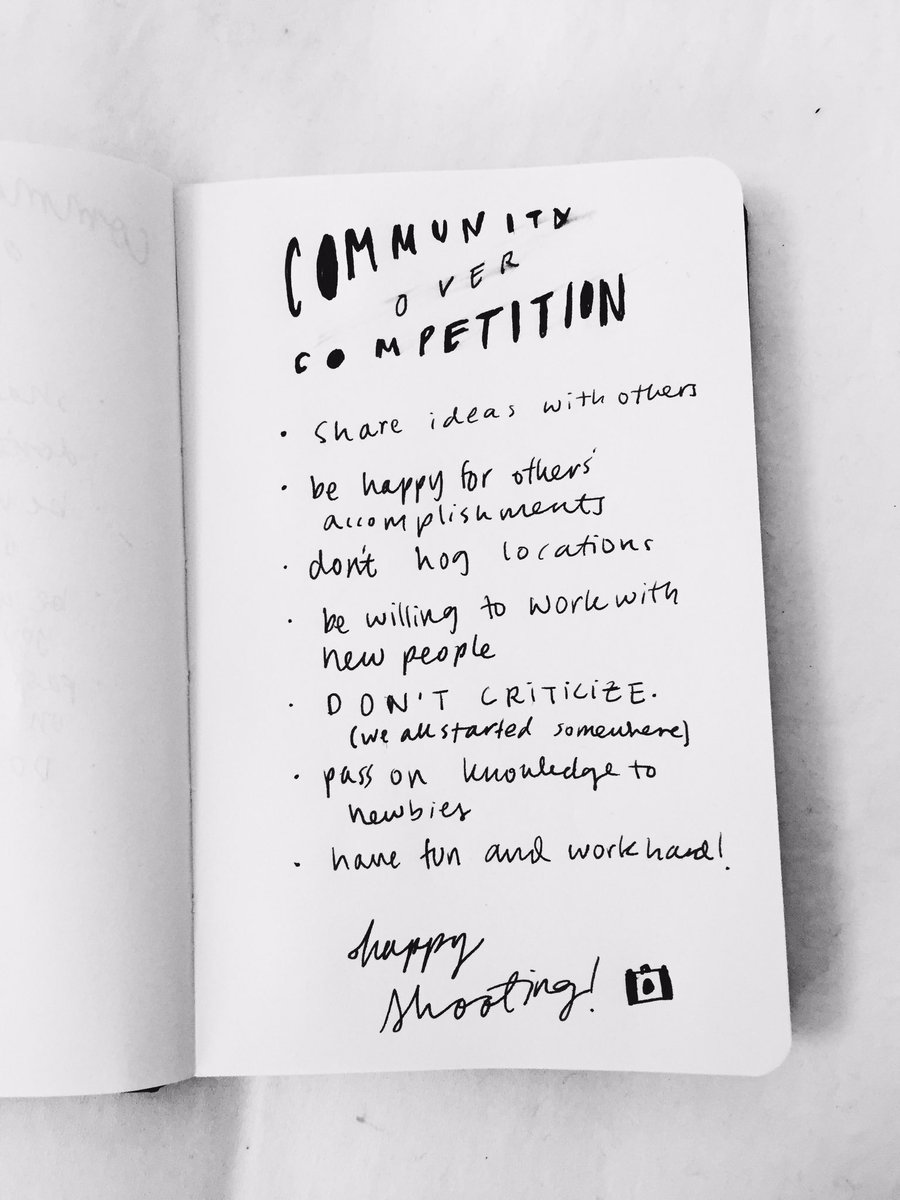 COMMUNITY
OVER
COMPETITION
• Share ideas with others
• be happy for others'
accomplishments
• don't hog locations
• be willing to work with
new people
• DON'T CRITICIZE.
(we all started somewhere)
• pass on knowledge to
newbies
• have fun and work hard!
happy
shooting!